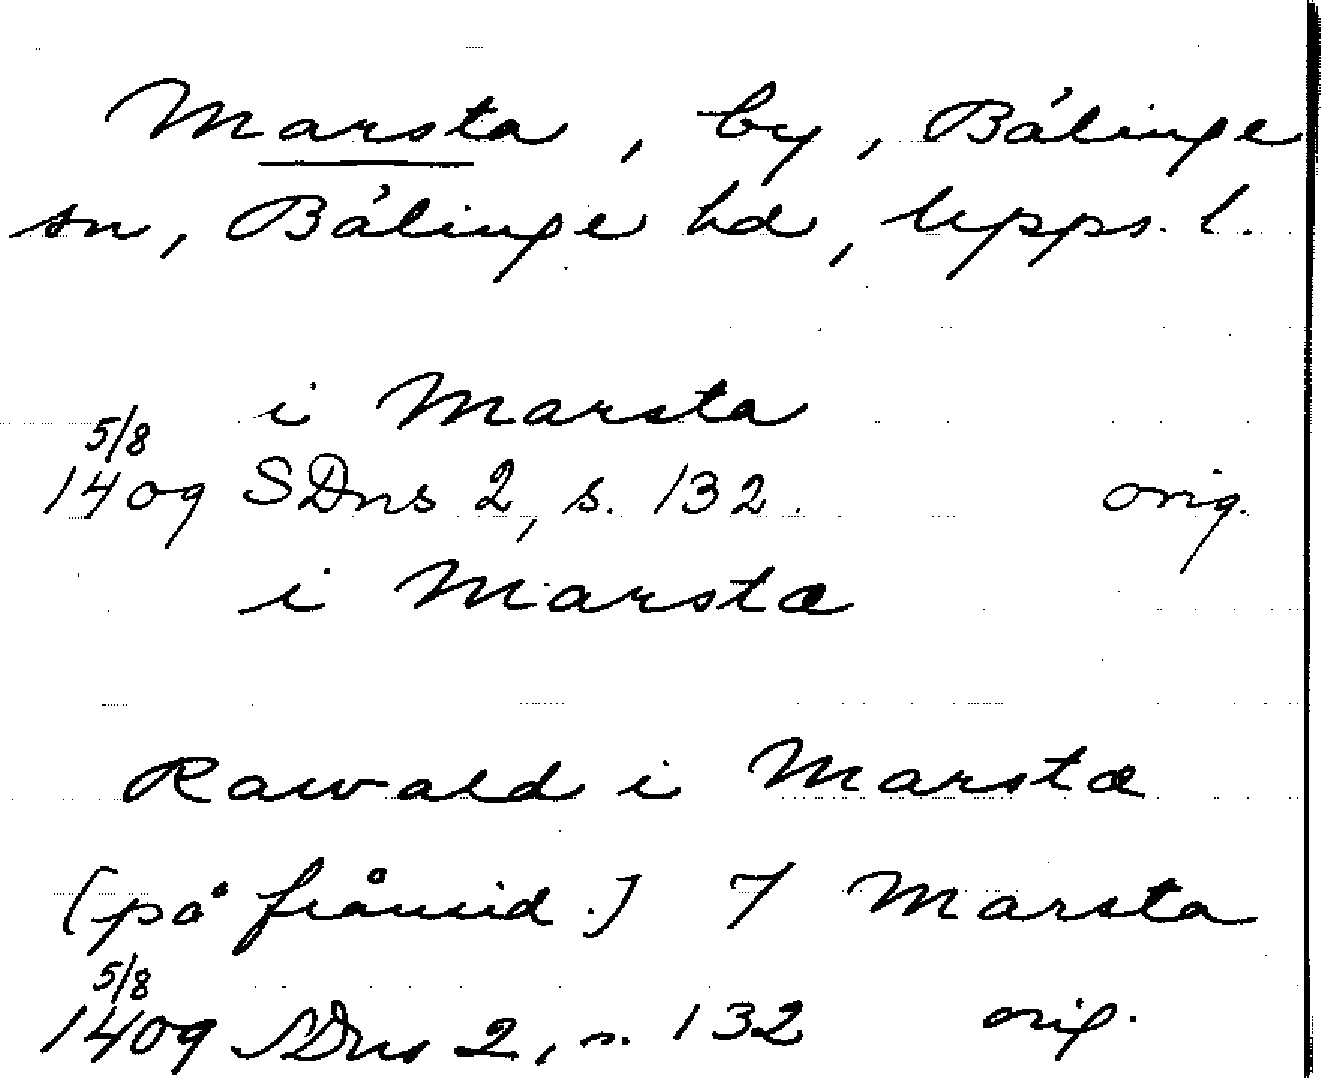 Marsta, by, Bälinge
sn, Bälinge hd, Upps. l.
i Marsta
5/8
1409 SDns 2, s. 132. orig.
i Marstæ
Rawald i Marstæ
(på frånsid.) J Marsta
5/8
1409 SDns 2, s. 132 orig.